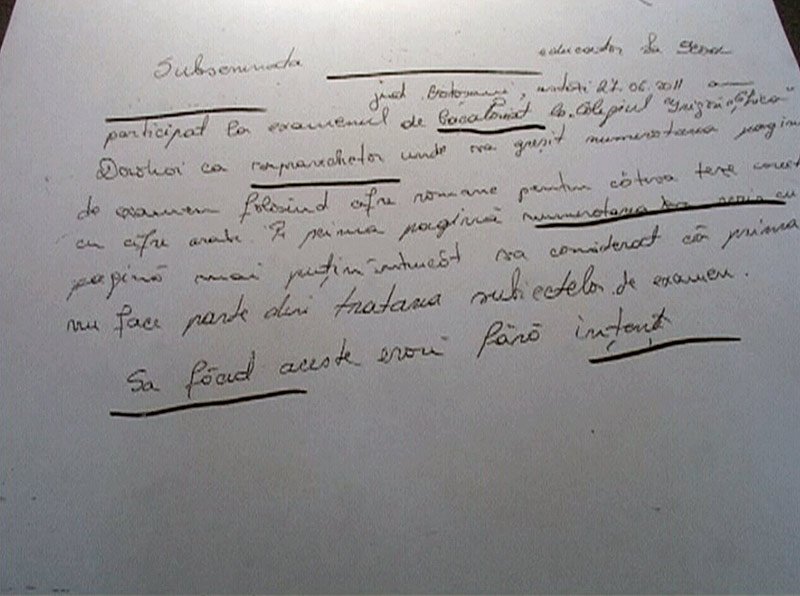 Subsemnata educator la
jud. Botosani, astăzi 27.06.2011 am
participat la examenul de bacaloriat la Colegiul "Grigore Ghica"
Dorohoi ca unde sa greșit numerotarea pagini
de examen folosind cifre romane pentru câteva teze corect
cu cifre arabe. Pe prima pagină numerotarea sa scris cu
pagină mai puțin întrucât sa considerat că prima
nu face parte din tratarea subiectelor de examen.
Sa făcud aceste erori fără